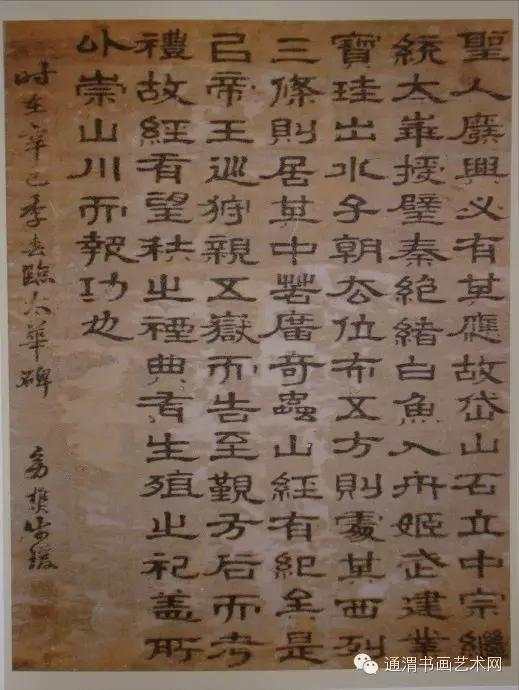 聖人廢興必有其應故岱山石立中宗繼
統太華授璧秦絕緒白魚入舟姬武建業
寶珪出水子朝位布五方則處其西列
三條則居其中若廣奇蟲山經有紀至是
已帝王巡狩親五嶽而告至覲方后而考
禮故經有望秩之禋典有生殖之祀蓋所
以崇山川而報功也
时在辛巳季臨太華碑
通渭书画艺术网